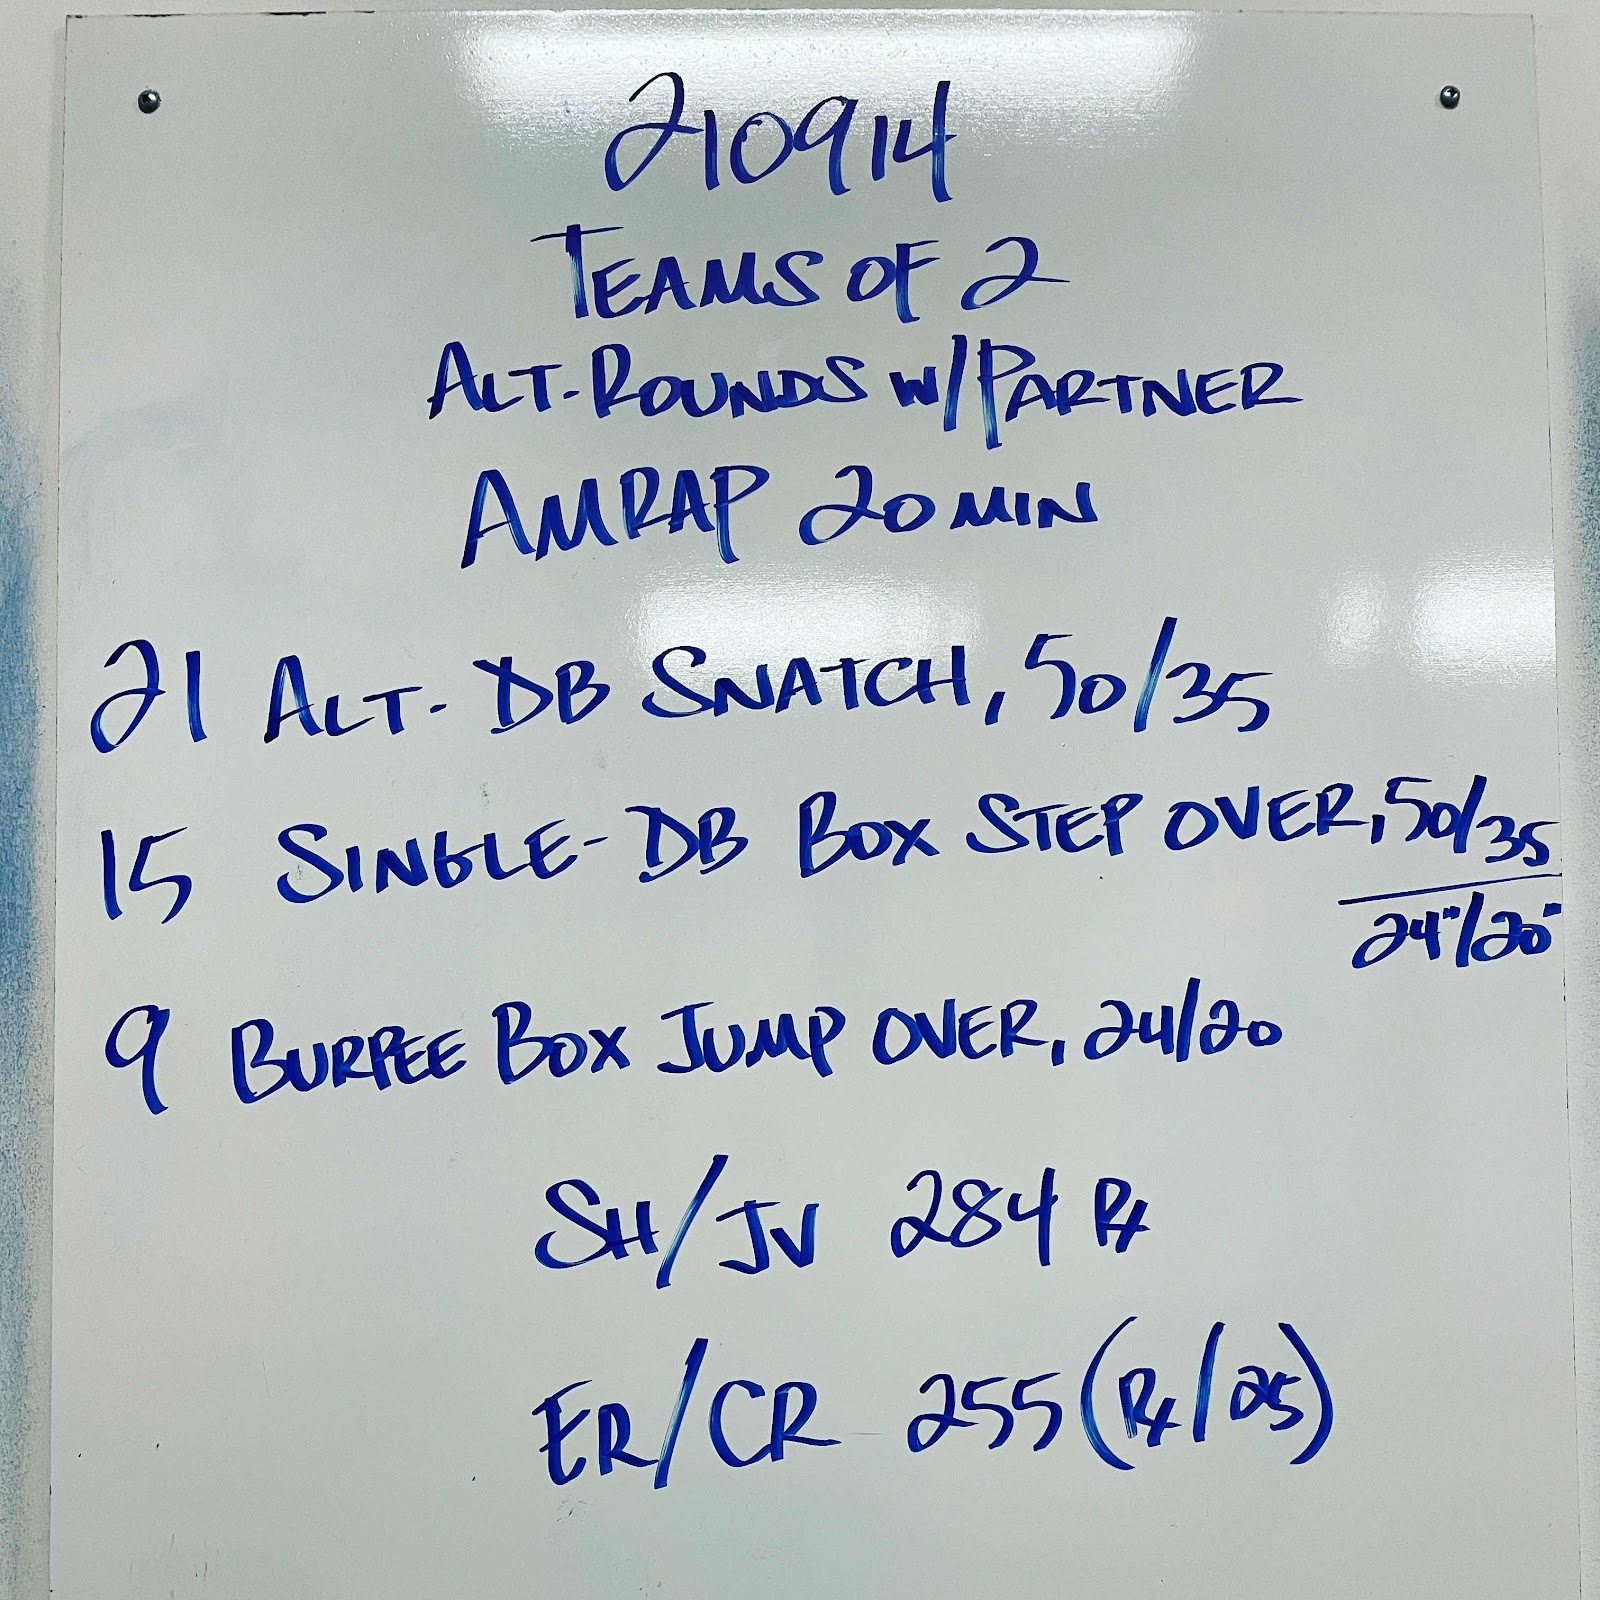 210914
TEAMS OF 2
ALT-ROUNDS W/PARTNER
AMRAP 20 MIN
21 ALT-DB SNATCH, 50/35
15 SINGLE-DB BOX STEP OVER, 50/35
24"/20"
9 BURPEE BOX JUMP OVER, 24/20
SH/JV 284 Rx
ER/CR 255 (Rx/25)